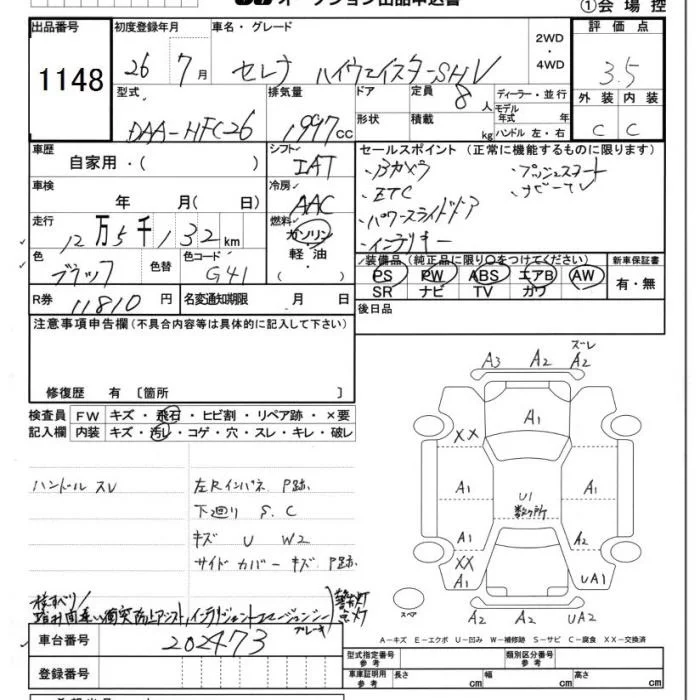 ①会 場 控
出品番号
1148
初度登録年月
26 年 7月
車名・グレード
セレナ ハイウェイスターSHV
2WD
・
4WD
評 価 点
3.5
外 装 内 装
C C
型式
DAA-HFC26
排気量
1997cc
ドア
形状
定員 8人
積載 kg
ディーラー・並行
モデル年式 年
ハンドル 左・右
車歴
自家用・( )
シフト
IAT
セールスポイント (正常に機能するものに限ります)
・Bカメラ ・プッシュスタート
・ETC ・ナビ・TV
・パワースライドドア
・インテリキー
車検
年 月( 日)
冷房
AAC
走行
12万5千132km
燃料
ガソリン
軽・油
・( )
色 ブラック 色替
色コード G41
装備品 (純正品に限り○をつけてください)
PS PW ABS エアB AW
SR ナビ TV カワ
新車保証書
有・無
R券 11810円
名変通知期限 月 日
後日品
注意事項申告欄(不具合内容等は具体的に記入して下さい)
修復歴 有 〔箇所 〕
検査員記入欄
FW キズ・飛石・ヒビ割・リペア跡・×要
内装 キズ・汚レ・コゲ・穴・スレ・キレ・破レ
ハンドル スレ
左Rインパネ P跡
下廻り S.C
キズ U W2
サイドカバー キズ P跡
ズレ
A3 A2 A2
A1
XX
A1 A1
U1
数ヶ所
A1 A2
XX
A1 UA1
スペア
A2 A2 UA2
A-キズ E-エクボ U-凹み W-補修跡 S-サビ C-腐食 XX-交換済
車台番号
202473
登録番号
型式指定番号
参考
類別区分番号
参考
車庫証明用
参考
長さ cm 幅 cm 高さ cm